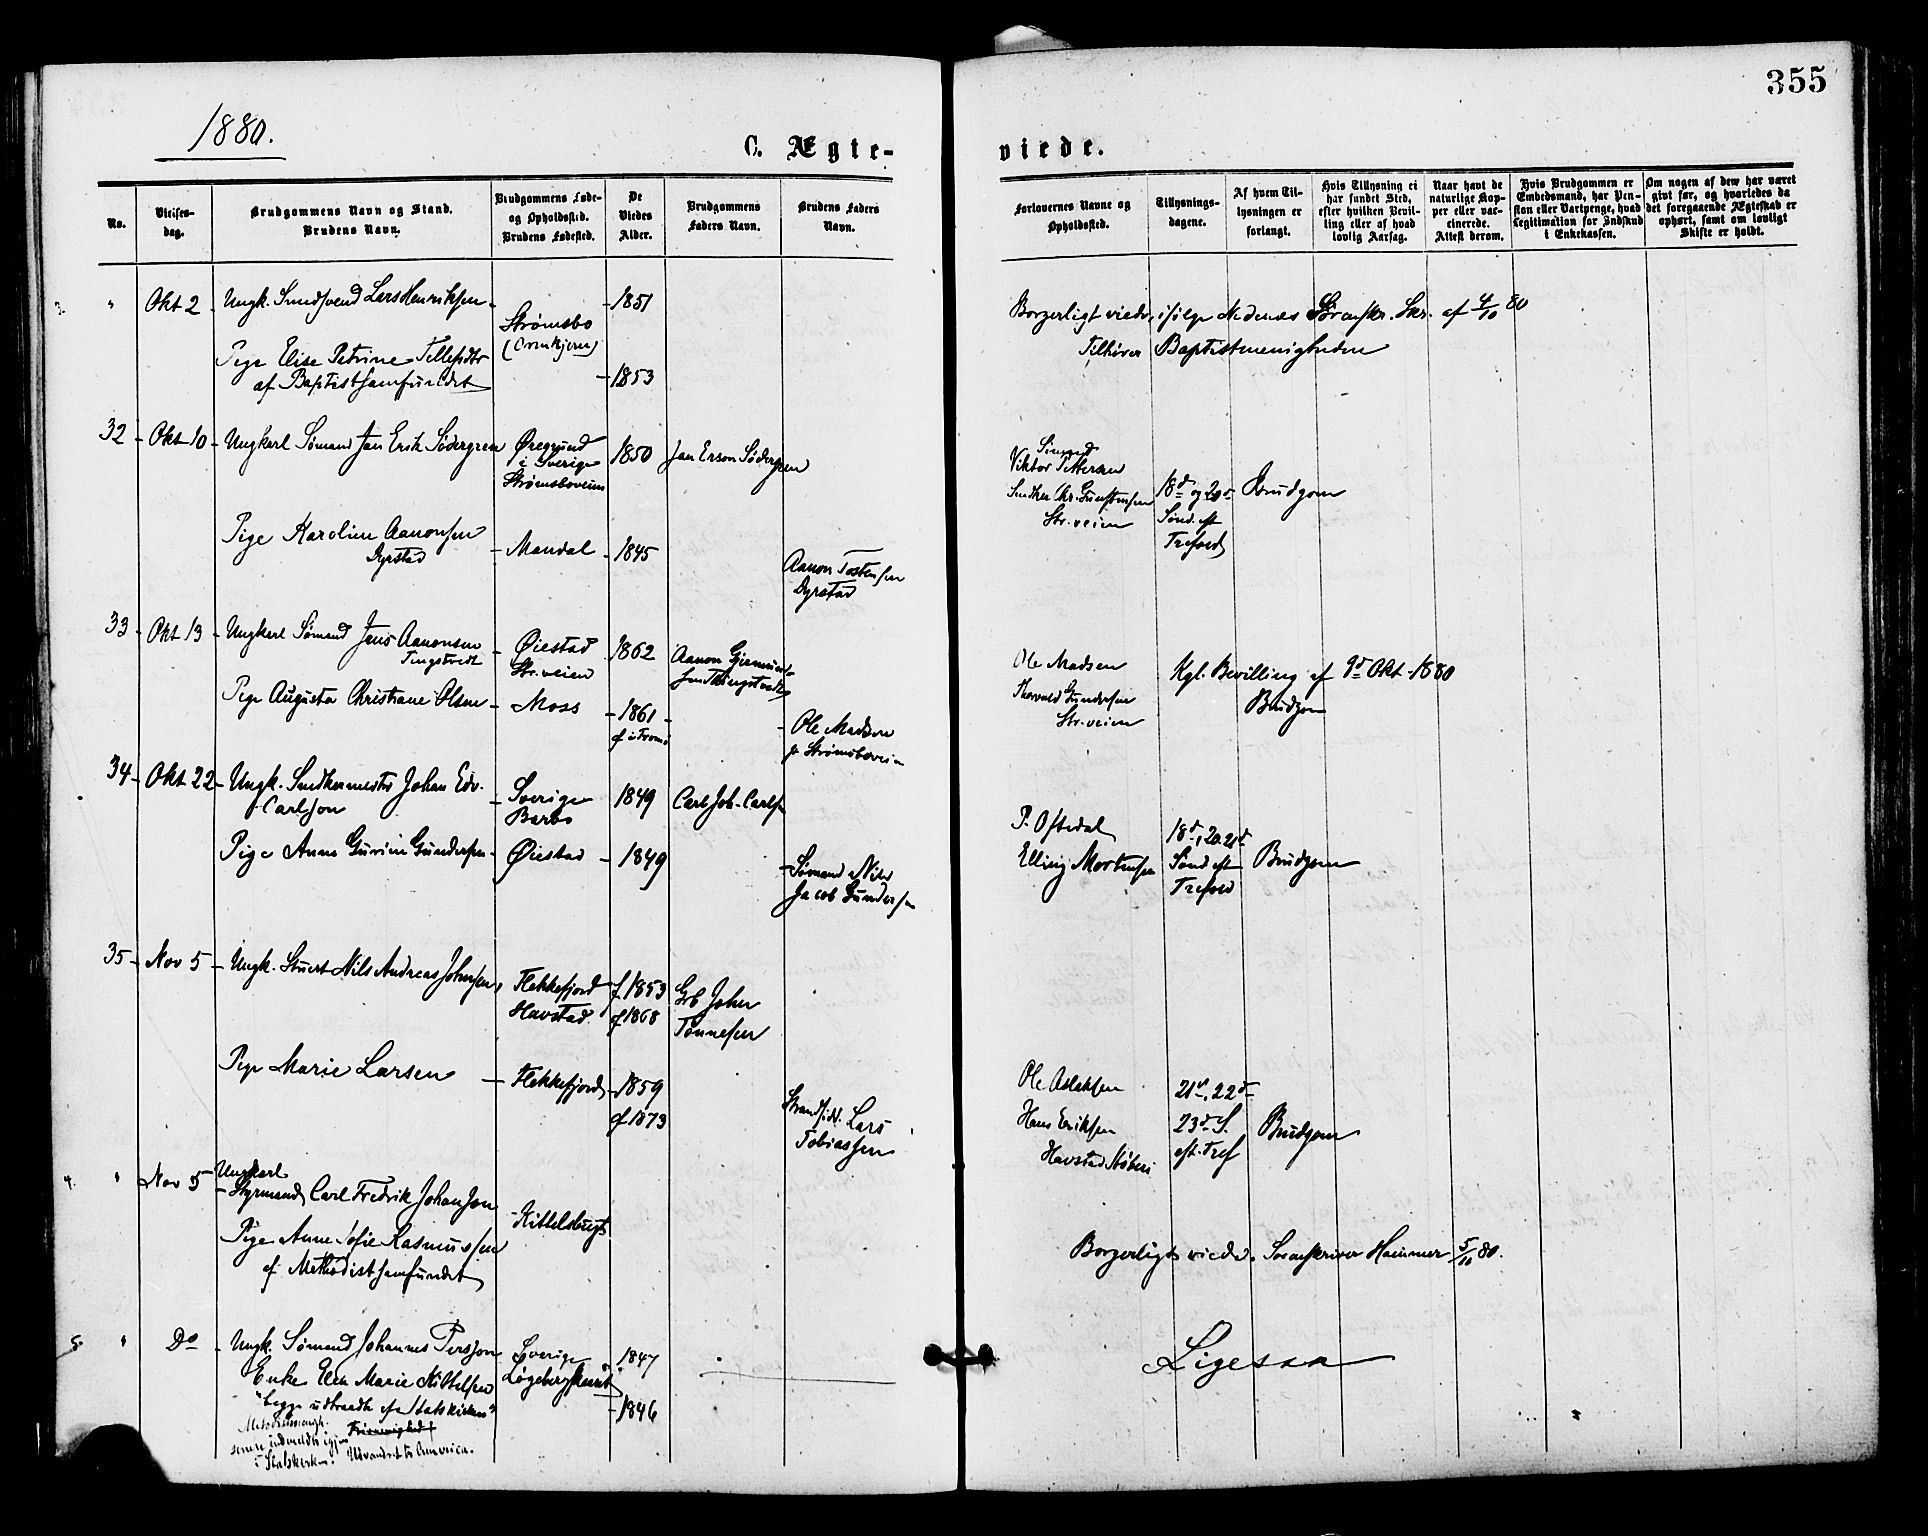 355
1880.
C. Ægte-
viede.
No.
Vielses-
dag.
Brudgommens Navn og Stand.
Brudens Navn.
Brudgommens Føde-
og Opholdssted.
Brudens Fødested.
De
Viedes
Alder.
Brudgommens
Faders Navn.
Brudens Faders
Navn.
Forlovernes Navne og
Opholdssted.
Tillysnings-
dagene.
Af hvem Til-
lysningen er
forlangt.
Hvis Tillysning ei
har fundet Sted,
efter hvilken Bevil-
ling eller af hvad
lovlig Aarsag.
Naar havt de
naturlige Kop-
per eller vac-
cinerede.
Attest derom.
Hvis Brudgommen er
Embedsmand, har Pen-
sion eller Vartpenge, hvad
Legitimation for Indskud
i Enkekassen.
Om nogen af dem har været
gift før, og hvorledes da
det foregaaende Ægteskab er
ophørt, samt om lovligt
Skifte er holdt.
3. " Okt 2 Ungk. Lars Henriksen - 1851
Strømsbo
Pige Elise Petrine Tellefsdtr
- 1853
af Baptistsamfundet
Borgerligt viede, ifølge Nedenæs Sorenskr. Skr. af 4/10 80
Tilhører Baptistmenigheden
32 - Okt 10 - Ungkarl Sømand Jan Erik Södergren
Øregrund
i Sverige
Strømsboveien
1850 Jan Erson Södergren
Pige Karoline Aanonsen
Dyrstad
- Mandal - 1845
Aanon Tostensen
Dyrstad
Sømand
Viktor Pettersen
Snedker Chr. Gunstensen
Str.veien
18d og 20d
Sønd. eft
Trefold
Brudgom
33 - Okt 13 - Ungkarl Sømand Jens Aanonsen
Tingstvedt
- Øiestad
Str.veien
1862 Aanon
Pige Augusta Christiane Olsen - Moss - 1861 -
- Ole Madsen
Strømsboveien
Ole Madsen
Thorvald Gundersen
Str.veien
Kgl. Bevilling af 9d Okt. 1880
Brudgom
34 - Okt 22 - Ungk. Snedkermester Johan Edv.
Carlson
- Sverige
Barbo
1849 Carl Joh. Carlson
Pige Anne Gurine Gundersen - Øiestad - 1849
- Sømand Nils
Jacob Gundersen
P. Oftedal
Elling Mortensen
18d, 20. 21d
Sønd eft
Trefold
Brudgom
35 - Nov 5 - Ungk. Stuert Nils Andreas Johnsen,
Flekkefjord
Havstad.
f 1853
cf 1868
Johan
Tønnesen
Pige Marie Larsen - Flekkefjord - 1859
cf 1873
Lars
Tobiassen
Ole Aslaksen
Hans Eriksen
Havstad
21d, 22d
23d S.
eft. Tref
Brudgom
4. " Nov 5 Ungkarl
- Styrmand Carl Fredrik Johanson
- Kittelsbugt
Pige Anne Sofie Rasmussen
af Methodistsamfundet
Borgerligt viede. Sorenskriver Hammer 5/10 80.
5. " Do - Ungk. Sømand Johannes Persson Sverige 1847
Enke Elen Marie Kittelsen
- 1846
"begge udtraadte af Statskirken"
Metodistmenigh. Frimenighed
senere indmeldte igjen
i Statskirken. Udvandret til Amerika.
Ligesaa